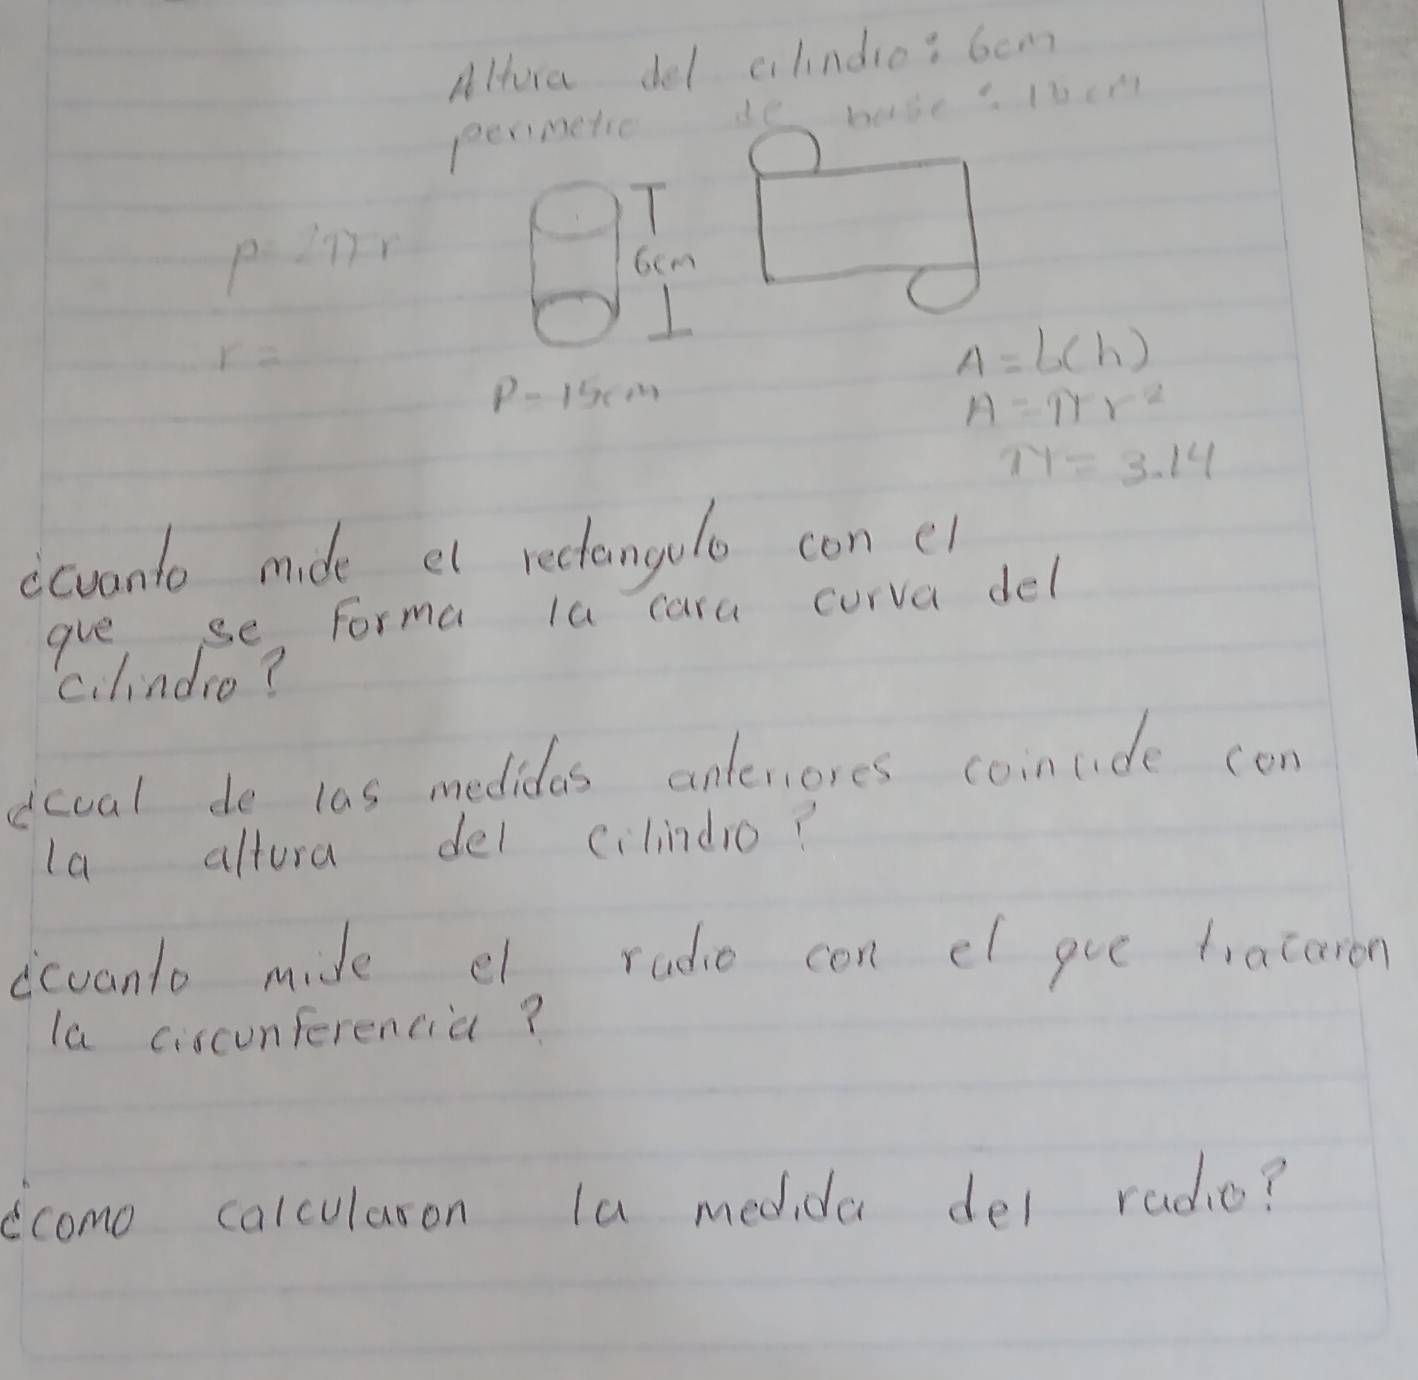 Altura del cilindro: 6cm
perimetro de base:
p=2πr
6cm
r=
P=15cm
A=b(h)
A=πr²
π=3.14
¿cuanto mide el rectangulo con el
que se forma la cara curva del
cilindro?
¿cual de las medidas anteriores coincide con
la altura del cilindro?
¿cuanto mide el radio con el que tracaron
la circunferencia?
¿como calcularon la medida del radio?